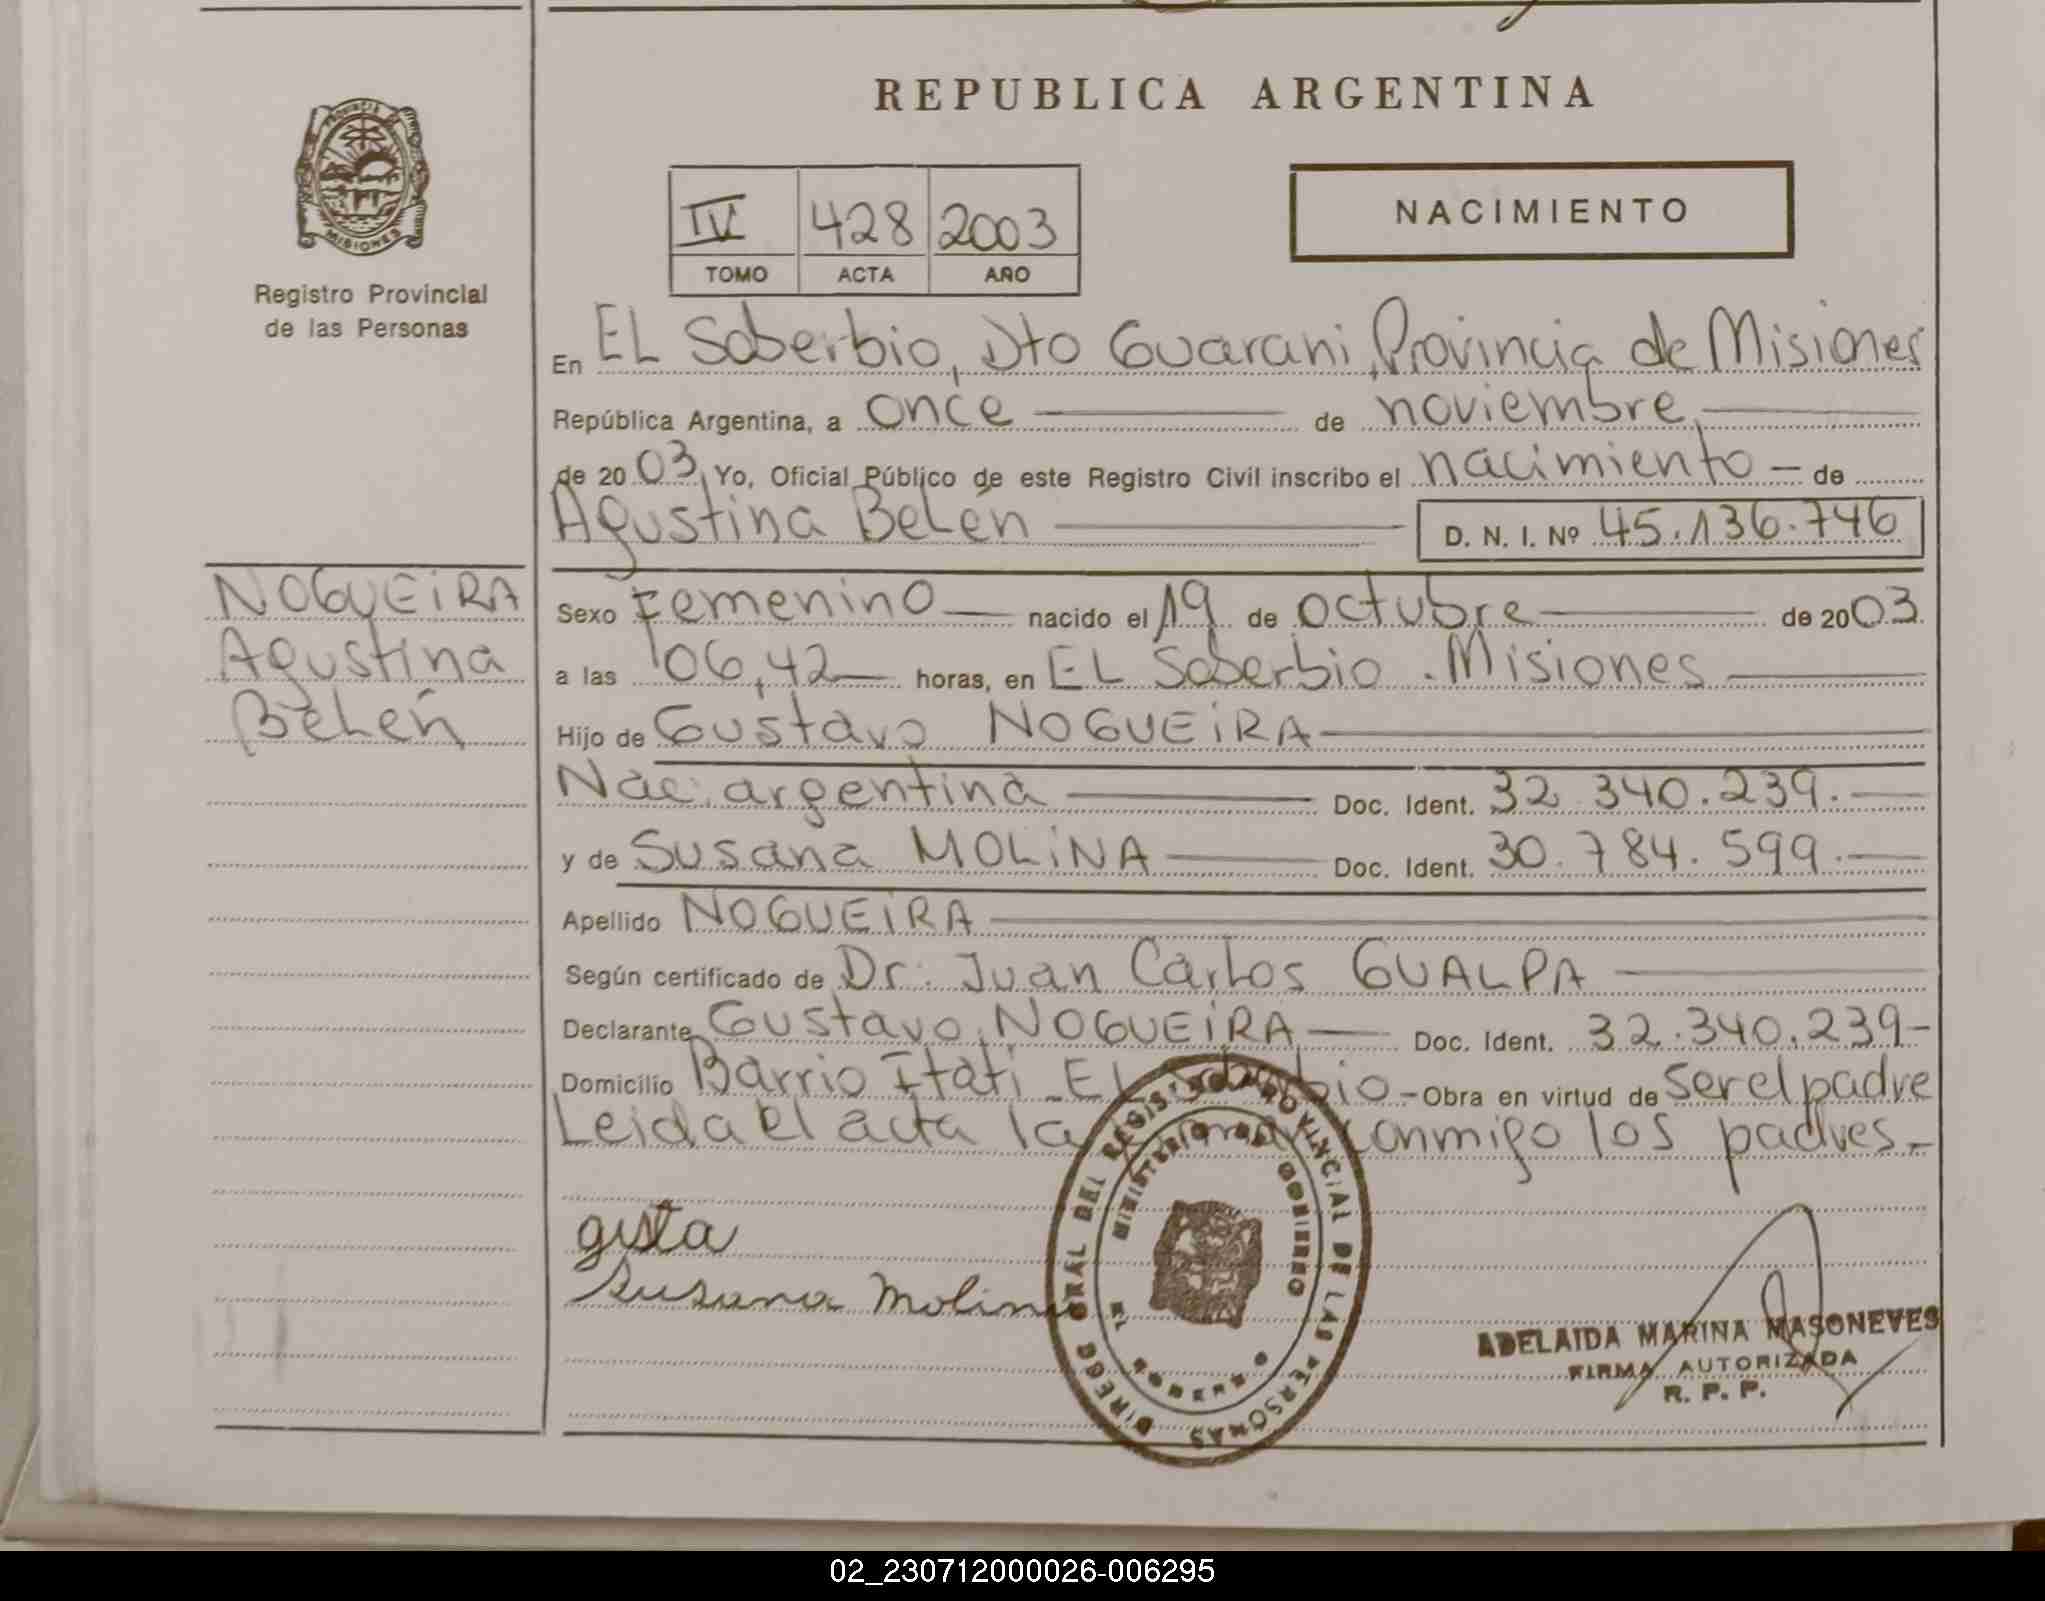 REPUBLICA ARGENTINA
PROVINCIA
MISIONES
Registro Provincial
de las Personas
IV 428 2003
TOMO ACTA AÑO
NACIMIENTO
En EL Soberbio, Dto Guarani, Provincia de Misiones
República Argentina, a once de noviembre,
de 2003, Yo, Oficial Público de este Registro Civil inscribo el nacimiento - de
Agustina Belén D. N. I. Nº 45.136.746
NOGUEIRA
Agustina
Belén
Sexo Femenino nacido el 19 de octubre de 2003
a las 06,42 horas, en EL Soberbio . Misiones
Hijo de Gustavo NOGUEIRA
Nac. argentina Doc. Ident. 32.340.239.-
y de Susana MOLINA Doc. Ident. 30.784.599.-
Apellido NOGUEIRA
Según certificado de Dr. Juan Carlos GUALPA
Declarante Gustavo NOGUEIRA Doc. Ident. 32.340.239-
Domicilio Barrio Itati El Soberbio - Obra en virtud de ser el padre
Leida el acta la firman conmigo los padres.-
gusta
Susana Molina
DIRECC GRAL DEL REGISTRO PROVINCIAL DE LAS PERSONAS
MINISTERIO DE GOBIERNO
ADELAIDA MARINA MASONEVES
FIRMA AUTORIZADA
R. P. P.
02_230712000026-006295